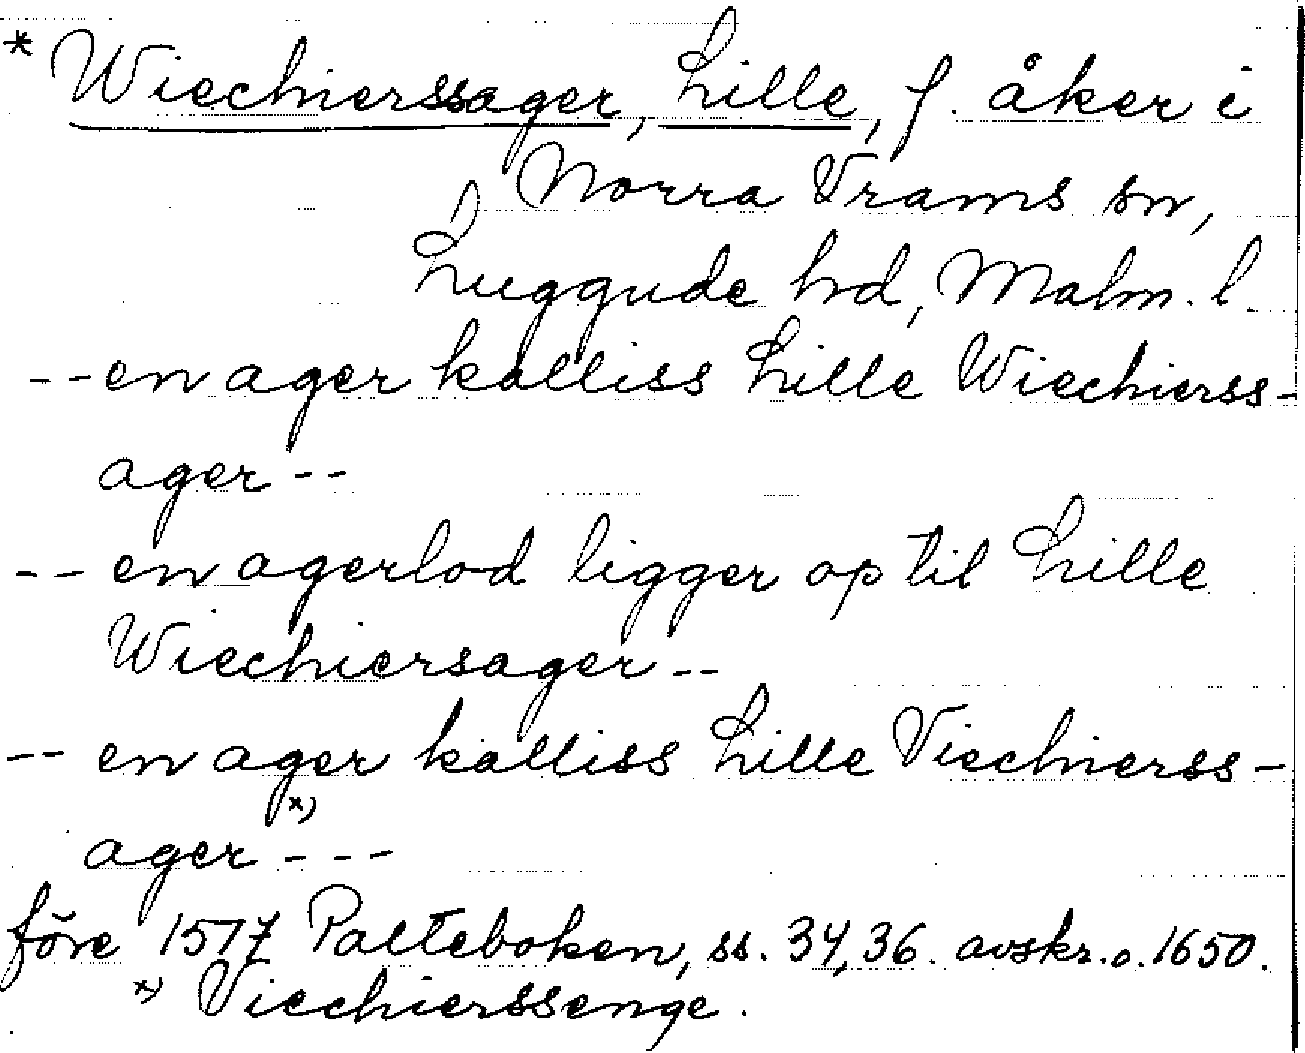 * Wiechierssager, Lille, f. åker i
Norra Vrams sn,
Luggude hd, Malm. l.
-- en ager kalliss Lille Wiechierss-
ager --
-- en agerlod ligger op til Lille
Wiechiersager --
-- en ager kalliss Lille Viechierss-
ager x) ---
före 1517 Palteboken, ss. 34, 36. avskr. o. 1650.
x) Viechierssenge.